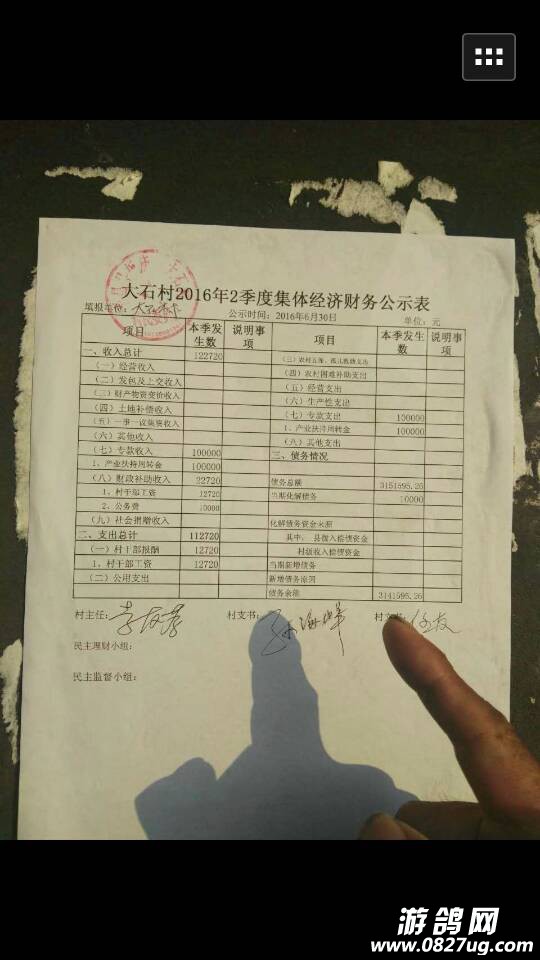 大石村2016年2季度集体经济财务公示表
填报单位：大石村
公示时间：2016年6月30日
单位：元
项目 本季发生数 说明事项 项目 本季发生数 说明事项
一、收入总计 122720 （三）农村五保、孤儿救助支出
（一）经营收入 （四）农村困难补助支出
（二）发包及上交收入 （五）经营支出
（三）财产物资变价收入 （六）生产性支出
（四）土地补偿收入 （七）专款支出 100000
（五）一事一议筹资收入 1、产业扶持周转金 100000
（六）其他收入 （八）其他支出
（七）专款收入 100000 三、债务情况
1、产业扶持周转金 100000
（八）财政补助收入 22720 债务总额 3151595.26
1、村干部工资 12720 当期化解债务 10000
2、公务费 10000
（九）社会捐赠收入 化解债务资金来源
二、支出总计 112720 其中：县级入偿债资金
（一）村干部报酬 12720 村级收入偿债资金
1、村干部工资 12720 当期新增债务
（二）公用支出 新增债务原因
债务余额 3141595.26
村主任： 村支书： 村文书：
民主理财小组：
民主监督小组：
游鸽网
www.0827ug.com